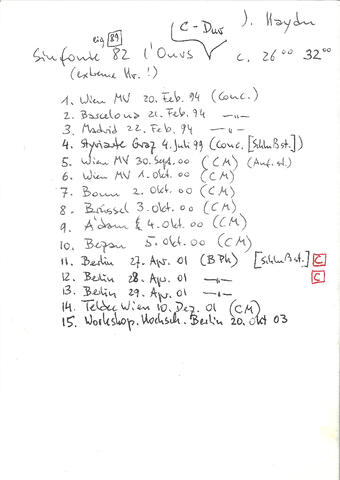 C-Dur J. Haydn
eig 89
Sinfonie 82 l'Ours c. 26°° 32°°
(extreme Hr.!)
1. Wien MV 20. Feb. 94 (Conc.)
2. Barcelona 21. Feb. 94 —"—
3. Madrid 22. Feb. 94 —"—
4. Styriarte Graz 4. Juli 99 (Conc. [Schlußst.])
5. Wien MV 30. Sept. 00 (CM) (Auf. st.)
6. Wien MV 1. Okt. 00 (CM)
7. Bonn 2. Okt. 00 (CM)
8. Brüssel 3. Okt. 00 (CM)
9. A'dam 4. Okt. 00 (CM)
10. 5. Okt. 00 (CM)
11. Berlin 27. Apr. 01 (BPh) [Schlußst.] C
12. Berlin 28. Apr. 01 —"— C
13. Berlin 29. Apr. 01 —"—
14. Teldec Wien 10. Dez. 01 (CM)
15. Workshop. Hochsch. Berlin 20. Okt 03